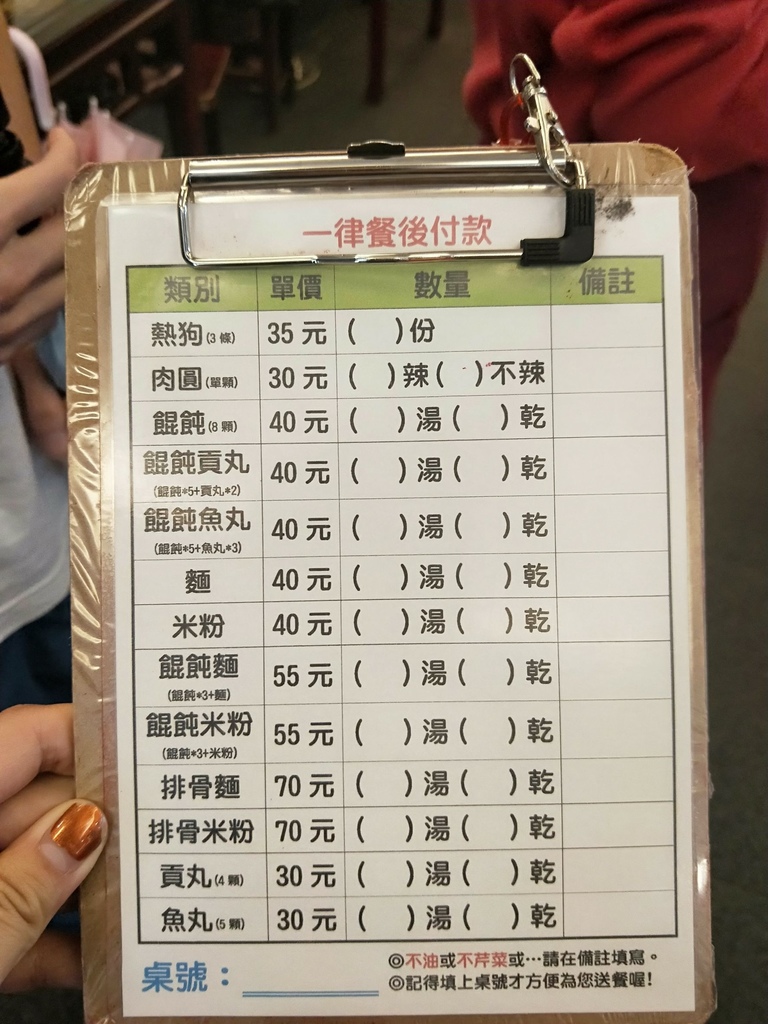 一律餐後付款
類別 單價 數量 備註
熱狗(3 條) 35 元 ( )份
肉圓(單顆) 30 元 ( )辣( )不辣
餛飩(8 顆) 40 元 ( )湯( )乾
餛飩貢丸 40 元 ( )湯( )乾
(餛飩*5+貢丸*2)
餛飩魚丸 40 元 ( )湯( )乾
(餛飩*5+魚丸*3)
麵 40 元 ( )湯( )乾
米粉 40 元 ( )湯( )乾
餛飩麵 55 元 ( )湯( )乾
(餛飩*3+麵)
餛飩米粉 55 元 ( )湯( )乾
(餛飩*3+米粉)
排骨麵 70 元 ( )湯( )乾
排骨米粉 70 元 ( )湯( )乾
貢丸(4 顆) 30 元 ( )湯( )乾
魚丸(5 顆) 30 元 ( )湯( )乾
桌號：
◎不油或不芹菜或…請在備註填寫。
◎記得填上桌號才方便為您送餐喔!